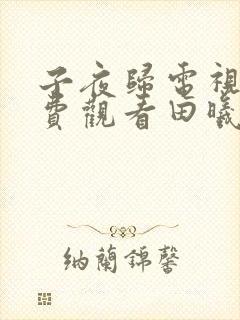 子夜歸電視
費觀看田曦
納蘭錦馨